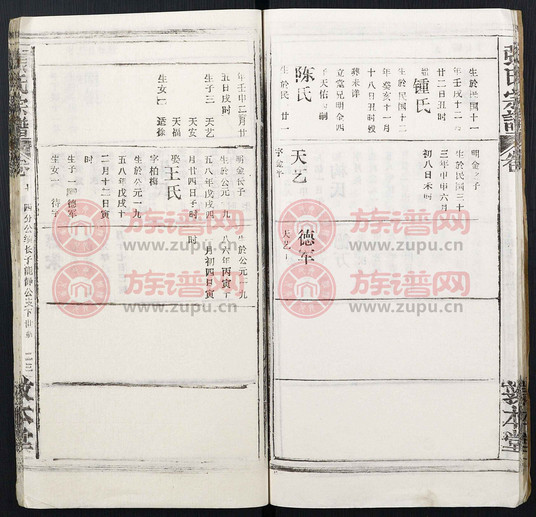 張氏宗譜
敦本堂
生於民國十一
年壬戌十二月
廿二日丑時
鍾氏
生於民國十二
年癸亥十一月
十八日丑時歿
葬米洋
立堂兄明金四
子天佑 嗣
陈氏
生於民 廿一
年壬申 二月廿
五日戌时
生子三 天艺
天福
天安
生女一 适徐
明金之子
生於民国三十
三年甲申六月
初八日未时
天艺
字金平
明金长子
生於公元一九
五八年戊戌四
月廿四日子时
娶王氏
字柏梅
生於公元一九
五八年戊戌十
二月十二日寅
时
生子一 德军
生女一 待字
德军
天艺子
生於公元一九
八六年丙寅十
月初四日寅
时
四分公缜长子能师公支下世系
二三
族谱网
www.zupu.cn
族谱网
www.zupu.cn
族谱网
www.zupu.cn
族谱网
www.zupu.cn
族谱网
www.zupu.cn
族谱网
www.zupu.cn